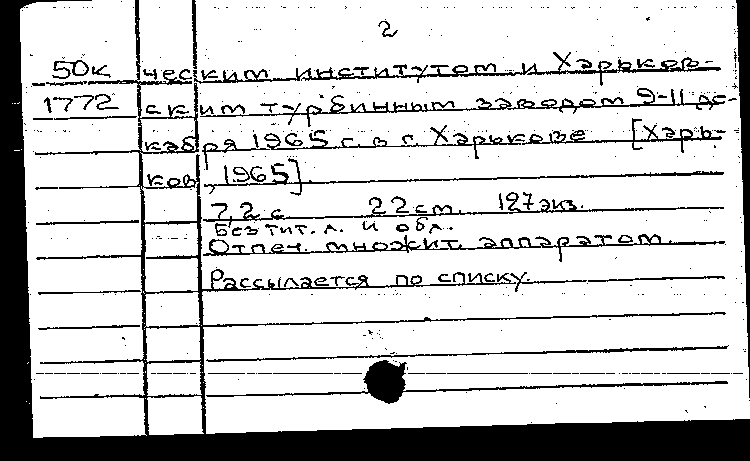 2
50к ческим институтом и Харьков-
1772 ским турбинным заводом 9-11 де-
кабря 1965 г. в г. Харькове [Харь-
ков, 1965].
7,2 с 22 см. 127 экз.
Без тит. л. и обл.
Отпеч. множит. аппаратом.
Рассылается по списку.